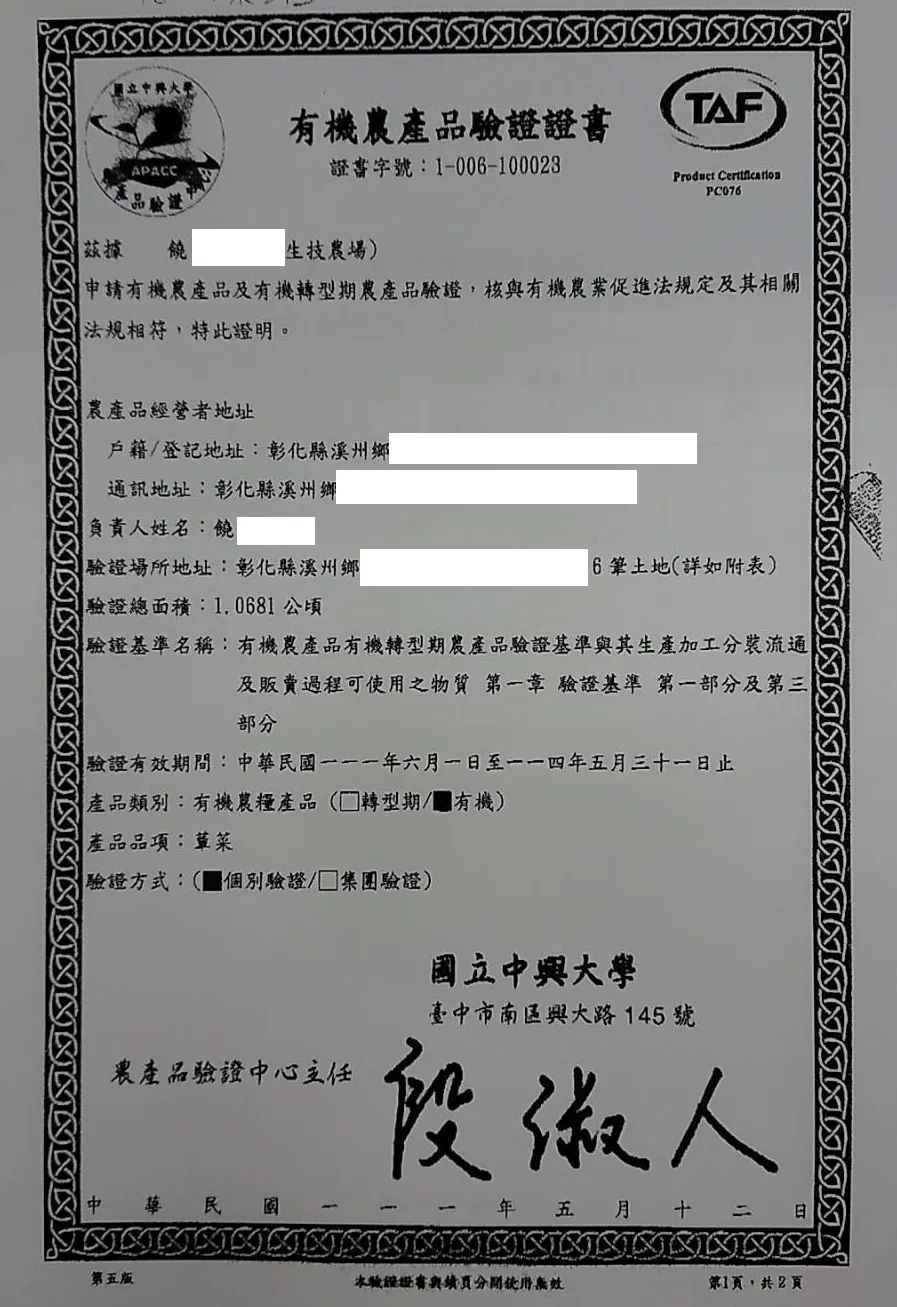 國立中興大學
APACC
農產品驗證中心
有機農產品驗證證書
證書字號：1-006-100023
TAF
Product Certification
PC076
茲據 饒 生技農場)
申請有機農產品及有機轉型期農產品驗證，核與有機農業促進法規定及其相關
法規相符，特此證明。
農產品經營者地址
戶籍/登記地址：彰化縣溪州鄉
通訊地址：彰化縣溪州鄉
負責人姓名：饒
驗證場所地址：彰化縣溪州鄉 6 筆土地(詳如附表)
驗證總面積：1.0681 公頃
驗證基準名稱：有機農產品有機轉型期農產品驗證基準與其生產加工分裝流通
及販賣過程可使用之物質 第一章 驗證基準 第一部分及第三
部分
驗證有效期間：中華民國一一一年六月一日至一一四年五月三十一日止
產品類別：有機農糧產品 (□轉型期/■有機)
產品品項：蕈菜
驗證方式：(■個別驗證/□集團驗證)
國立中興大學
臺中市南區興大路 145 號
農產品驗證中心主任 段淑人
中華民國一一一年五月十二日
第五版 本驗證證書與續頁分開使用無效 第1頁，共2頁